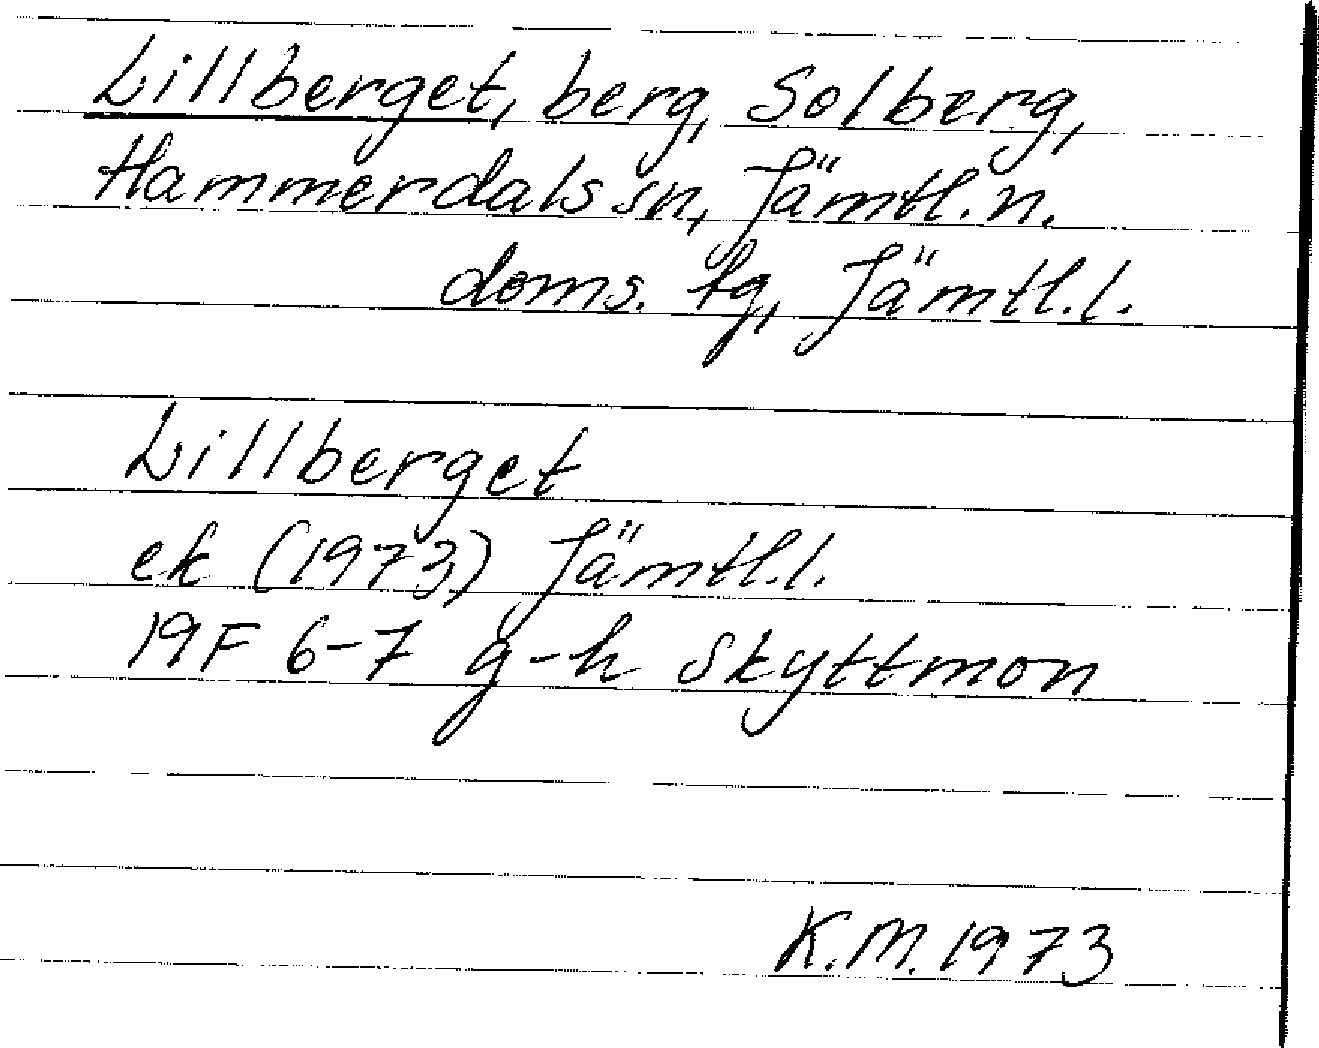 Lillberget, berg, Solberg,
Hammerdals sn, Jämtl. n.
doms. tg, Jämtl. l.
Lillberget
ek (1973) Jämtl. l.
19F 6-7 g-h Skyttmon
K. M. 1973